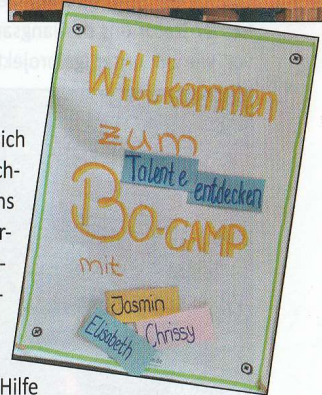 Willkommen
zum
Talente entdecken
BO-CAMP
mit
Jasmin
Elisabeth Chrissy
ich
ch-
ns
r-
-
-
Hilfe